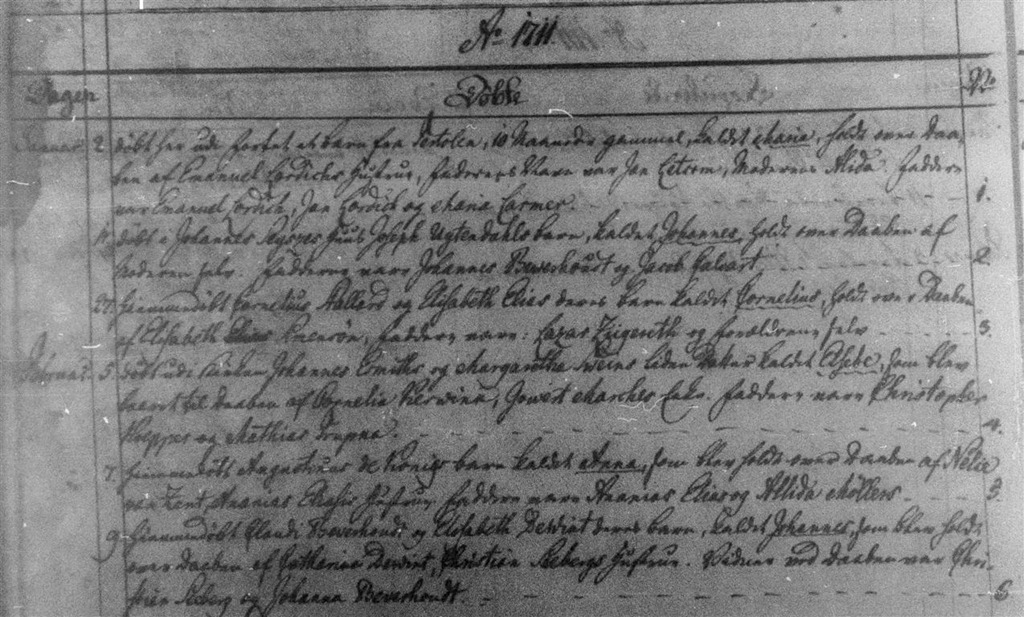 Ao 1711.
Dagen Döbte No
Januar 2 döbt her udi fortet et barn fra Tortolla, 10 Maaneder gammel, kaldet Maria, holdt over Daa-
ben af Emanuel Cordichs Hustrue, Faderens Navn var Jan, Moderens Alida. Faddere
var Emanuel Cordich, Jan Cordich og Maria Carmer. 1.
döbt i Johannes Huus Joseph Ugtendahls barn, kaldet Johannes, holdt over Daaben af
Moderen selv. Fadderne vare Johannes Beverhoudt og Jacob Calvart 2.
27. hiemmedöbt Cornelius og Elisabeth Elias deres barn kaldet Cornelius, holdt over Daaben
af Elisabeth, Faddere vare: Lazar og Forældrene selv 3.
Februar 5. döbt udi Kirken Johannes Smiths og Margaretha liden Datter kaldet Elsebe, som blev
baaret til Daaben af Cornelia, Gowert Marches Enke. Faddere vare Christopher
og Mathias. 4.
7. hiemmedöbt Augustinus de Konigs barn kaldet Anna, som blev holdt over Daaben af Nelie
van Zent, Ananias Eliasis Hustrue, Faddere vare Ananias Elias og Allida Möllers 5.
9 hiemmedöbt Claudi Beverhoudt og Elisabeth Dewint deres barn, kaldet Johannes, som blev holdt
over Daaben af Catharina Dewint, Christian Hustrue. Vidner ved Daaben var Chri-
stian og Johanna Beverhoudt. 6.